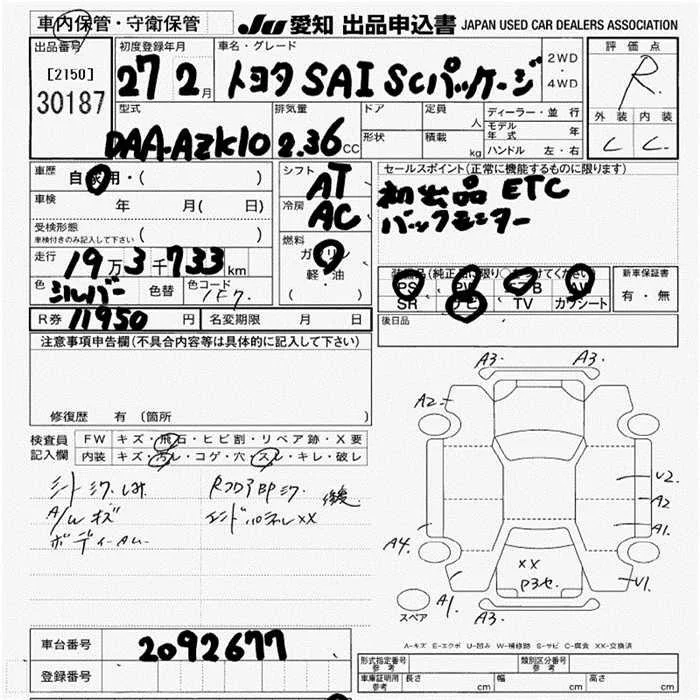 車内保管・守衛保管
JU 愛知 出品申込書 JAPAN USED CAR DEALERS ASSOCIATION
出品番号
[2150]
30187
初度登録年月
27 2月
車名・グレード
トヨタ SAI SCパッケージ
2WD
・
4WD
評価点
R
外装 内装
C C
型式
DAA-AZK10
排気量
2.36 CC
ドア
形状
定員 人
積載 kg
ディーラー・並行
モデル年式 年
ハンドル 左・右
車歴
自家用・( )
車検 年 月( 日)
受検形態
車検付きのみ記入して下さい ( )
走行 19万3千733km
色 シルバー 色替 色コード 1F7
R券 11950円 名変期限 月 日
シフト AT
冷房 AC
燃料
ガソリン
軽・油
( )
セールスポイント(正常に機能するものに限ります)
初出品 ETC
バックモニター
装備品(純正品に限り○をつけてください)
PS PW AW
SR ナビ TV カワシート
新車保証書
有・無
後日品
注意事項申告欄(不具合内容等は具体的に記入して下さい)
修復歴 有(箇所
検査員記入欄
FW キズ・飛石・ヒビ割・リペア跡・X要
内装 キズ・汚レ・コゲ・穴・スレ・キレ・破レ
シート シワ しみ
A/W キズ
ボディー
RフロアBPシワ
エンドパネルXX
修复
A3. A3.
A2
U2
A2
A1
A4
XX
P3セ
A1
U1
A3
スペア
A-キズ E-エクボ U-凹み W-補修跡 S-サビ C-腐食 XX-交換済
車台番号 2092677
登録番号
形式指定番号 参考
類別区分番号 参考
車庫証明用 参考 長さ cm 幅 cm 高さ cm